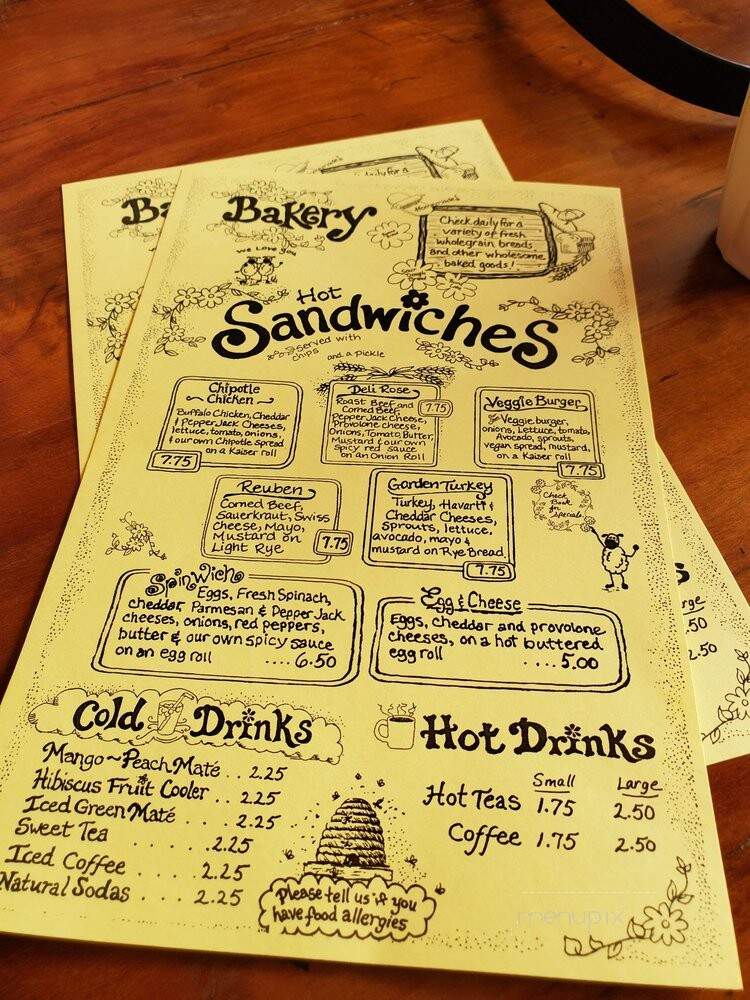 Ba
daily for a
Bakery
Check daily for a
variety of fresh
wholegrain breads
and other wholesome
baked goods!
we Love you
Hot
Sandwiches
served with
chips and a pickle
Chipotle
Chicken
Buffalo Chicken, Cheddar
& Pepper Jack Cheeses,
lettuce, tomato, onions,
& our own Chipotle Spread
on a Kaiser roll
7.75
Deli Rose
Roast Beef and
Corned Beef,
Pepper Jack Cheese,
Provolone cheese,
Onions, Tomato, Butter,
Mustard & our own
Spicy red sauce
on an Onion Roll
7.75
Veggie Burger
Veggie burger,
onions, Lettuce, tomato,
Avocado, sprouts,
vegan spread, mustard,
on a Kaiser roll
7.75
Reuben
Corned Beef,
Sauerkraut, Swiss
cheese, Mayo,
Mustard on
Light Rye
7.75
Garden Turkey
Turkey, Havarti &
Cheddar Cheeses,
Sprouts, lettuce,
avocado, mayo &
mustard on Rye Bread
7.75
Check
Book
for
Specials
Spinwich
Eggs, Fresh Spinach,
cheddar, Parmesan & Pepper Jack
cheeses, onions, red peppers,
butter & our own spicy sauce
on an egg roll .... 6.50
Egg & Cheese
Eggs, cheddar and provolone
cheeses, on a hot buttered
egg roll .... 5.00
Cold Drinks
Mango~Peach Maté .. 2.25
Hibiscus Fruit Cooler .. 2.25
Iced Green Maté .... 2.25
Sweet Tea ...... 2.25
Iced Coffee .... 2.25
Natural Sodas ... 2.25
Please tell us if you
have food allergies
Hot Drinks
Small Large
Hot Teas 1.75 2.50
Coffee 1.75 2.50
s
rge
2.50
2.50
menupix